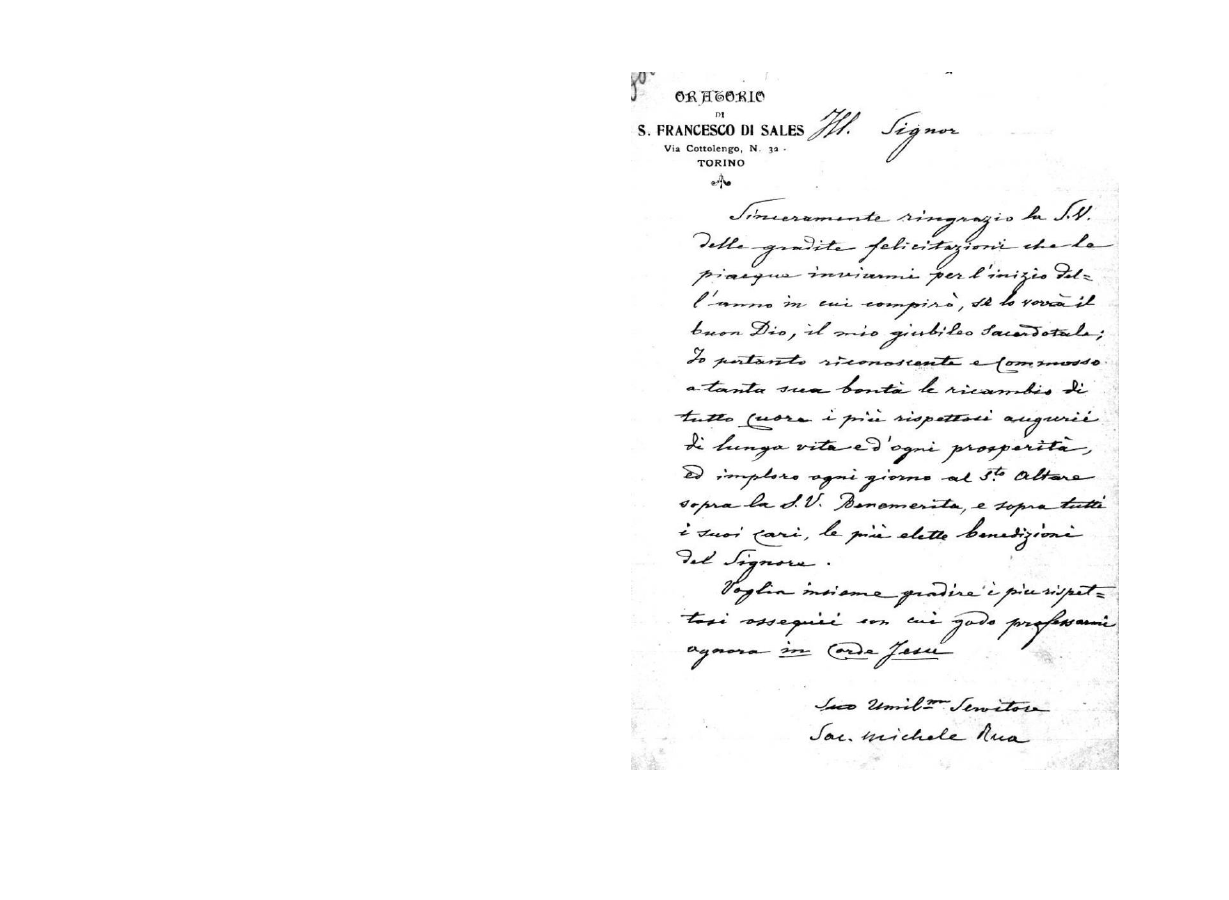 ORATORIO
DI
S. FRANCESCO DI SALES
Via Cottolengo, N. 32 -
TORINO
Ill. Signor
Sinceramente ringrazio la S.V.
delle gradite felicitazioni che le
piacque inviarmi per l'inizio del=
l'anno in cui compirò, se lo vorrà il
buon Dio, il mio giubileo Sacerdotale;
Io pertanto riconoscente e Commosso
a tanta sua bontà le ricambio di
tutto Cuore i più rispettosi augurii
di lunga vita e d'ogni prosperità,
ed imploro ogni giorno al S.to Altare
sopra la S.V. Benemerita, e sopra tutti
i suoi Cari, le più elette benedizioni
del Signore.
Voglia insieme gradire i più rispet=
tosi ossequii con cui godo professarmi
ognora in Corde Jesu
Suo Umil.mo Servitore
Sac. Michele Rua